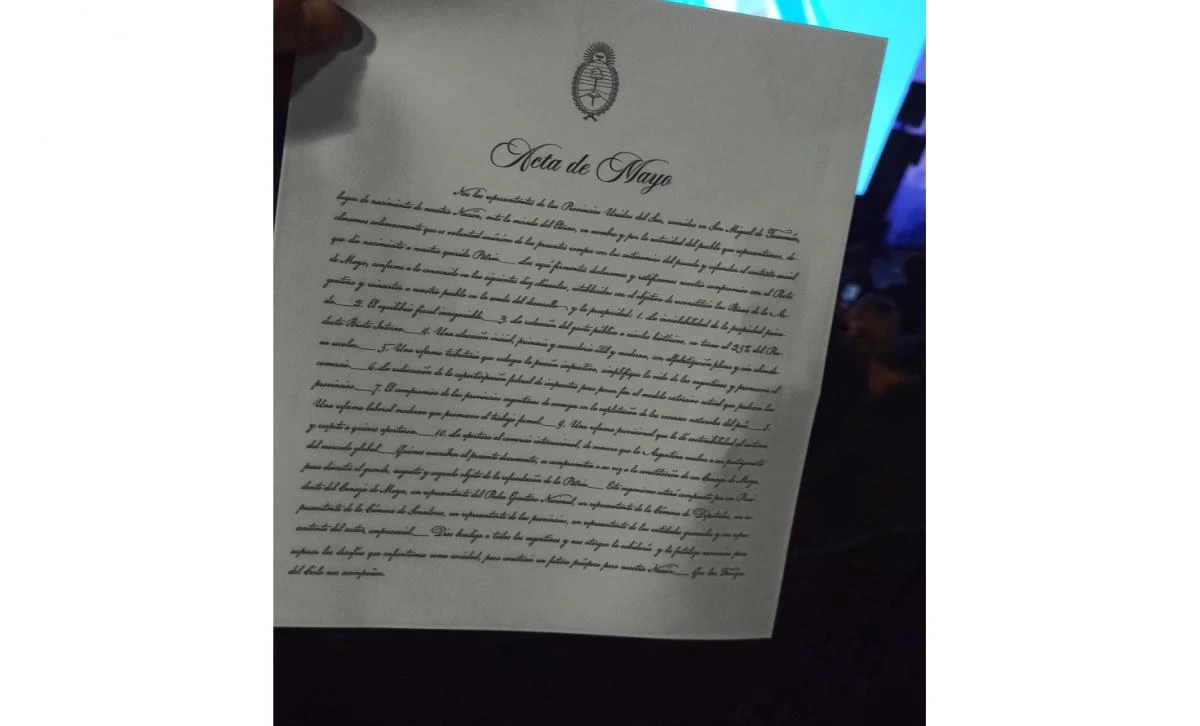 Acta de Mayo
Nos los representantes de las Provincias Unidas del Sur, reunidos en San Miguel de Tucumán,
lugar de nacimiento de nuestra Nación, ante la mirada del Eterno, en nombre y por la autoridad del pueblo que representamos, de-
claramos solemnemente que es voluntad unánime de los presentes romper con las antinomias del pasado y refundar el contrato social
que dio nacimiento a nuestra querida Patria. Los aquí firmantes declaramos y ratificamos nuestro compromiso con el Pacto
de Mayo, conforme a lo convenido en las siguientes diez cláusulas, establecidas con el objetivo de reconstruir las Bases de la Ar-
gentina y reinsertar a nuestro pueblo en la senda del desarrollo y la prosperidad: 1. La inviolabilidad de la propiedad priva-
da. 2. El equilibrio fiscal innegociable. 3. La reducción del gasto público a niveles históricos, en torno al 25% del Pro-
ducto Bruto Interno. 4. Una educación inicial, primaria y secundaria útil y moderna, con alfabetización plena y sin abando-
no escolar. 5. Una reforma tributaria que reduzca la presión impositiva, simplifique la vida de los argentinos y promueva el
comercio. 6. La rediscusión de la coparticipación federal de impuestos para poner fin al modelo extorsivo actual que padecen las
provincias. 7. El compromiso de las provincias argentinas de avanzar en la explotación de los recursos naturales del país. 8.
Una reforma laboral moderna que promueva el trabajo formal. 9. Una reforma previsional que le dé sustentabilidad al sistema
y respete a quienes aportaron. 10. La apertura al comercio internacional, de manera que la Argentina vuelva a ser protagonista
del mercado global. Quienes suscriben al presente documento, se comprometen a su vez a la constitución de un Consejo de Mayo,
para discutir el grande, augusto y sagrado objeto de la refundación de la Patria. Este organismo estará compuesto por un Presi-
dente del Consejo de Mayo, un representante del Poder Ejecutivo Nacional, un representante de la Cámara de Diputados, un re-
presentante de la Cámara de Senadores, un representante de las provincias, un representante de las entidades gremiales y un repre-
sentante del sector empresarial. Dios bendiga a todos los argentinos y nos otorgue la sabiduría y la fortaleza necesaria para
superar los desafíos que enfrentamos como sociedad, para construir un futuro próspero para nuestra Nación. Que las Fuerzas
del Cielo nos acompañen.